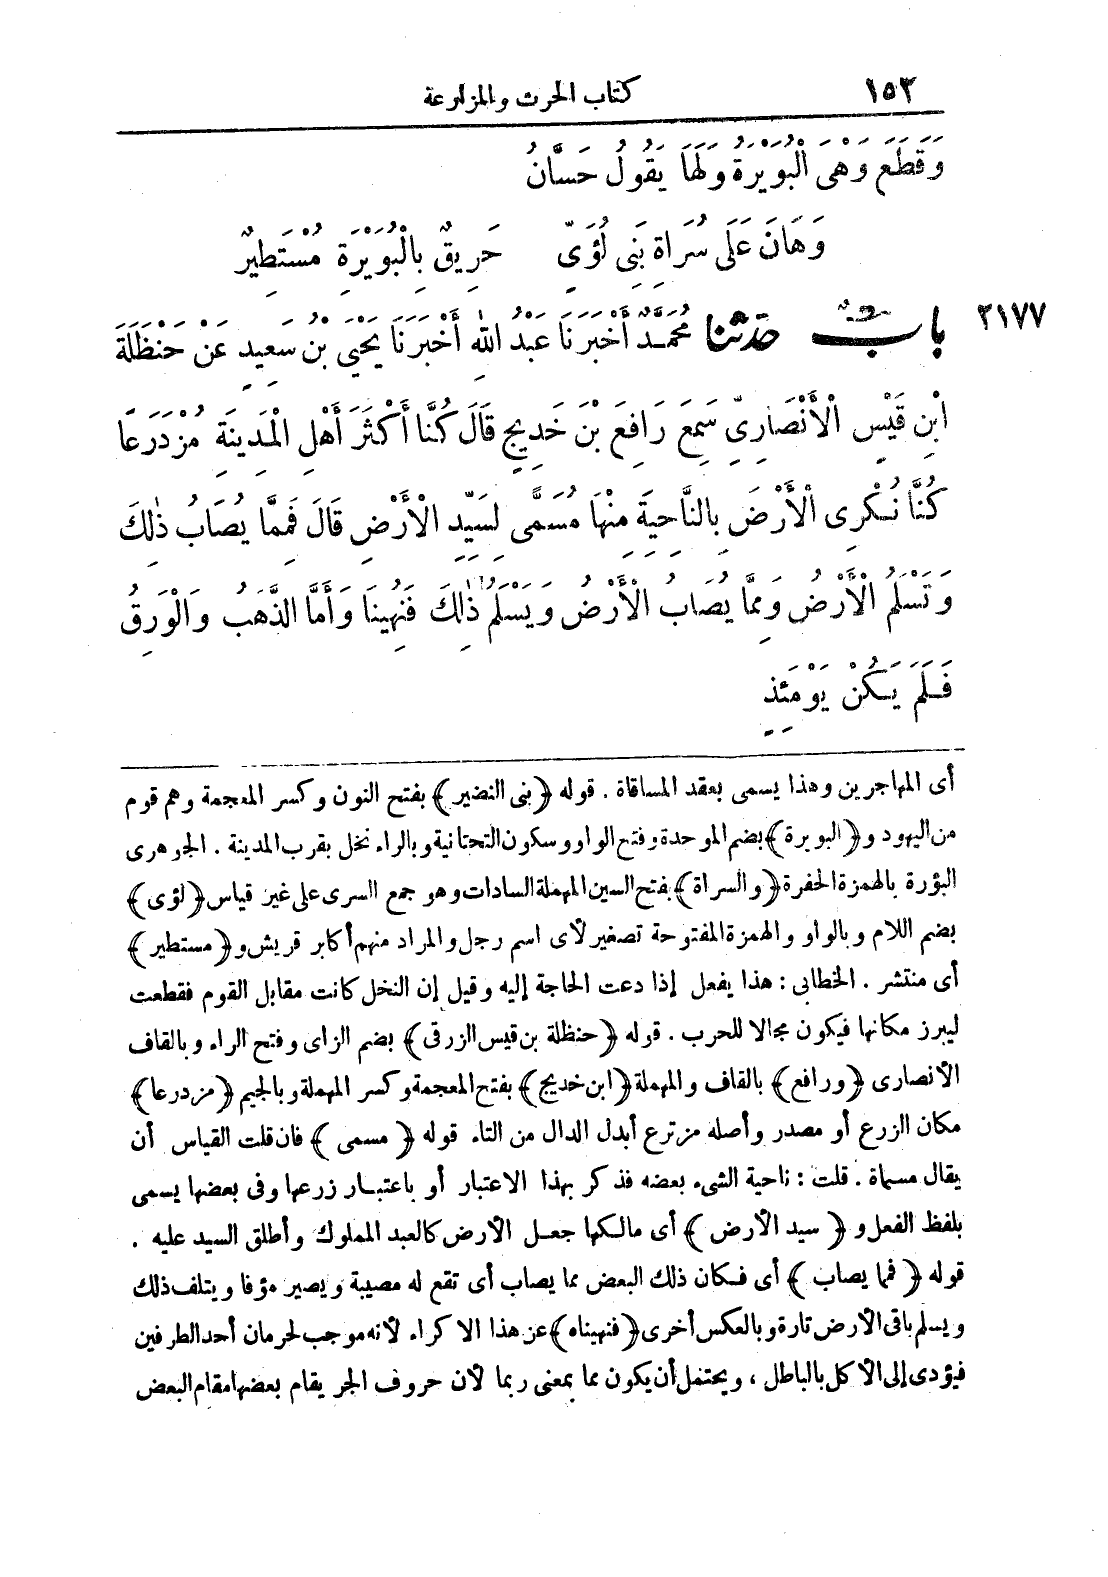 ١٥٣ كتاب الحرث والمزارعة
وَقَطَعَ وَهْىَ الْبُوَيْرَةُ وَلَهَا يَقُولُ حَسَّانُ
وَهَانَ عَلَى سُرَاةِ بَنِى لُؤَىٍّ حَرِيقٌ بِالْبُوَيْرَةِ مُسْتَطِيرٌ
٢١٧٧ بابٌ حدثنا مُحَمَّدٌ أَخْبَرَنَا عَبْدُ اللهِ أَخْبَرَنَا يَحْيَى بْنُ سَعِيدٍ عَنْ حَنْظَلَةَ
ابْنِ قَيْسٍ الْأَنْصَارِىِّ سَمِعَ رَافِعَ بْنَ خَدِيجٍ قَالَ كُنَّا أَكْثَرَ أَهْلِ الْمَدِينَةِ مُزْدَرَعًا
كُنَّا نُكْرِى الْأَرْضَ بِالنَّاحِيَةِ مِنْهَا مُسَمًّى لِسَيِّدِ الْأَرْضِ قَالَ فَمِمَّا يُصَابُ ذٰلِكَ
وَتَسْلَمُ الْأَرْضُ وَمِمَّا يُصَابُ الْأَرْضُ وَيَسْلَمُ ذٰلِكَ فَنُهِينَا وَأَمَّا الذَّهَبُ وَالْوَرِقُ
فَلَمْ يَكُنْ يَوْمَئِذٍ
أى المهاجرين وهذا يسمى بعقد المساقاة . قوله ﴿بنى النضير﴾ بفتح النون وكسر المعجمة وهم قوم
من اليهود و﴿البويرة﴾ بضم الموحدة وفتح الواو وسكون التحتانية وبالراء نخل بقرب المدينة . الجوهرى
البؤرة بالهمزة الحفرة ﴿والسراة﴾ بفتح السين المهملة السادات وهو جمع السرى على غير قياس ﴿لؤى﴾
بضم اللام وبالواو والهمزة المفتوحة تصغير لأى اسم رجل والمراد منهم أكابر قريش و﴿مستطير﴾
أى منتشر . الخطابى : هذا يفعل إذا دعت الحاجة إليه وقيل إن النخل كانت مقابل القوم فقطعت
ليبرز مكانها فيكون مجالا للحرب . قوله ﴿حنظلة بن قيس الزرقى﴾ بضم الزاى وفتح الراء وبالقاف
الأنصارى ﴿ورافع﴾ بالقاف والمهملة ﴿ابن خديج﴾ بفتح المعجمة وكسر المهملة وبالجيم ﴿مزدرعا﴾
مكان الزرع أو مصدر وأصله مزترع أبدل الدال من التاء قوله ﴿مسمى﴾ فان قلت القياس أن
يقال مسماة . قلت : ناحية الشىء بعضه فذكر بهذا الاعتبار أو باعتبار زرعها وفى بعضها يسمى
بلفظ الفعل و﴿سيد الأرض﴾ أى مالكها جعل الأرض كالعبد المملوك وأطلق السيد عليه .
قوله ﴿فمما يصاب﴾ أى فكان ذلك البعض مما يصاب أى تقع له مصيبة ويصير مؤفا ويتلف ذلك
ويسلم باقى الأرض تارة وبالعكس أخرى ﴿فنهيناه﴾ عن هذا الاكراء لأنه موجب لحرمان أحد الطرفين
فيؤدى إلى الأكل بالباطل ، ويحتمل أن يكون مما بمعنى ربما لأن حروف الجر يقام بعضها مقام البعض